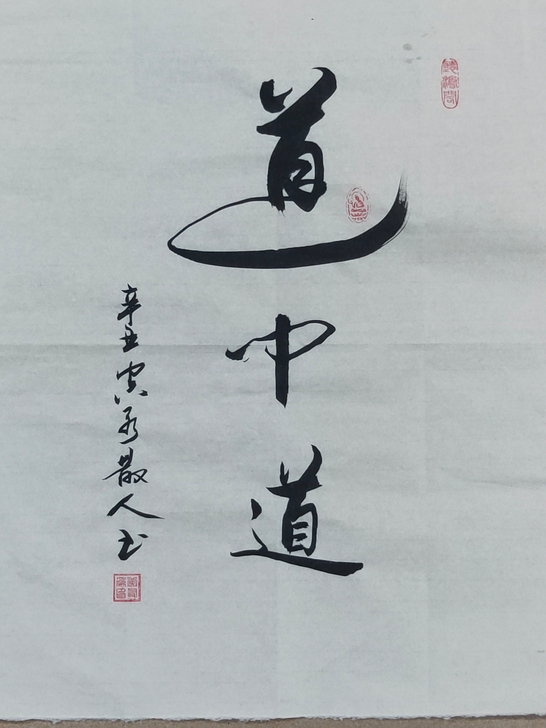 道中道
辛丑 散人书